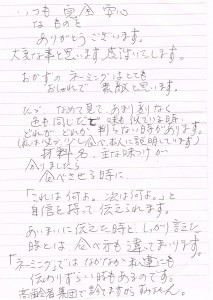 いつも 安全 安心
なものと
ありがとうございます。
大変な事と思います 感謝いてします。
おかずのネーミングはとても
おしゃれで 素敵と思います。
なめて見て、あまり刻なく
色も同じで 味も似ている時、
どれが どれか 判らない時があります。
材料名・主な味つけが
入りましたら
食べさせる時に、
「これは何よ。次は何よ。」と
自信を持って伝えられます。
あいまいに伝えた時と、しっかり言えた
時とは 食べ方も違ってまいります。
「ネーミング」では なかなか私達にも
伝わりずらい時もあるのです。
高齢者集団で